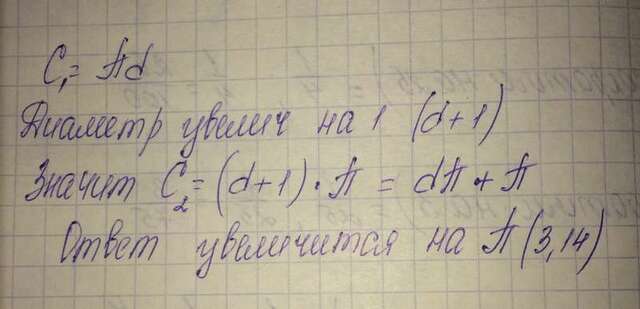 C₁ = πd
Диаметр увелич на 1 (d+1)
Значит C₂ = (d+1)·π = dπ + π
Ответ увеличится на π (3,14)